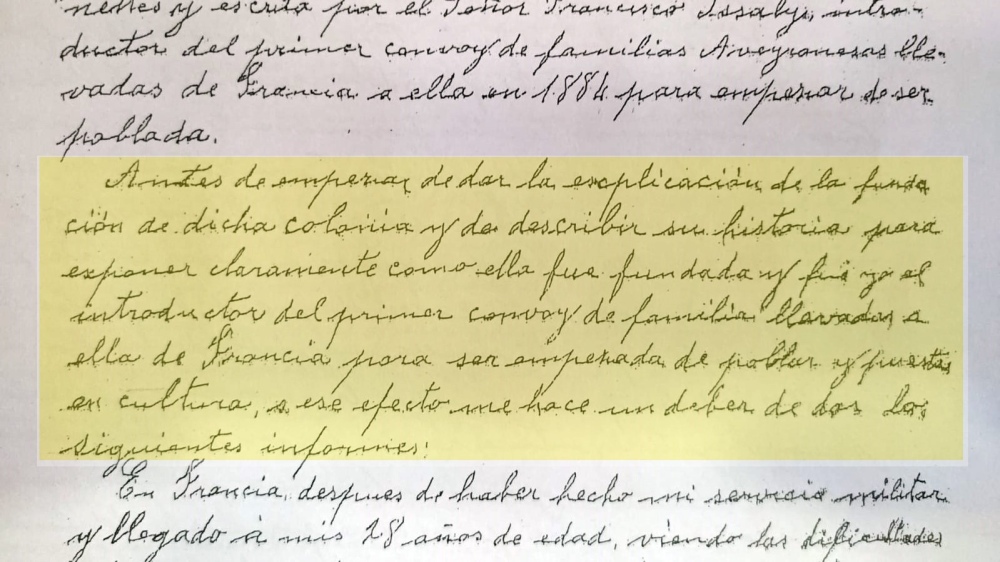 neses y escrita por el Señor Francisco Issaly, intro-
ductor del primer convoy de familias Aveyronesas lle-
vadas de Francia a ella en 1884 para empezar de ser
poblada.
Antes de empezar de dar la explicación de la funda
ción de dicha colonia y de describir su historia para
exponer claramente como ella fue fundada y fui yo el
introductor del primer convoy de familia llevadas a
ella de Francia para ser empezada de poblar y puesta
en cultura, a ese efecto me hace un deber de dar los
siguientes informes:
En Francia, despues de haber hecho mi servicio militar
y llegado à mis 28 años de edad, viendo las dificultades